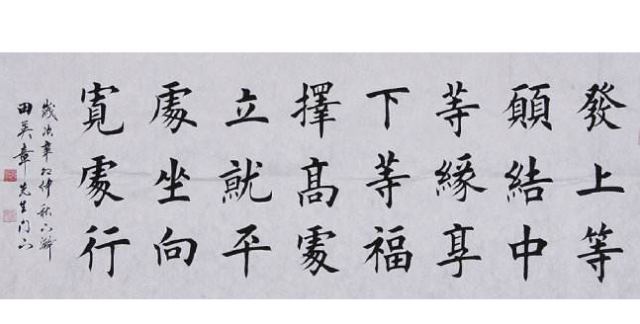 發上等
願結中
等緣享
下等福
擇高處
立就平
處坐向
寬處行
歲次辛卯仲秋
田英章先生門下